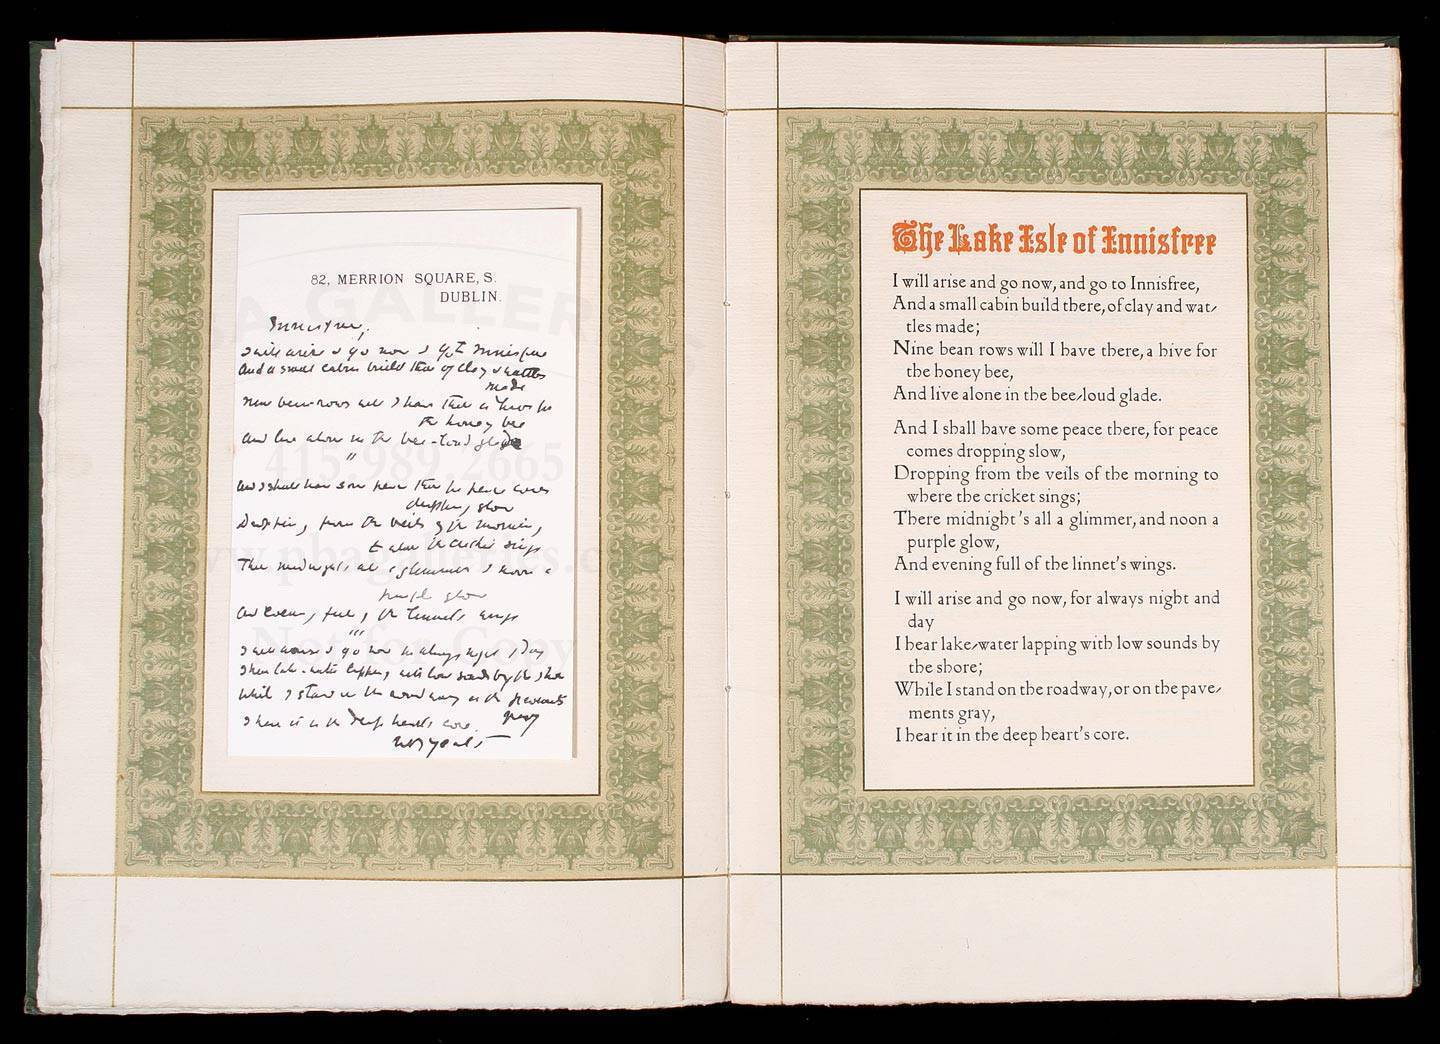 82, MERRION SQUARE, S.
DUBLIN.
Innisfree,
I will arise & go now & go to Innisfree
And a small cabin build there of clay & wattles
made
Nine bean-rows will I have there a hive for
the honey bee
And live alone in the bee-loud glade
"
And I shall have some peace there for peace comes
dropping slow
Dropping from the veils of the morning
to where the cricket sings
There midnight's all a glimmer & noon a
purple glow
And evening full of the linnet's wings
"'
I will arise & go now for always night & day
I hear lake-water lapping with low sounds by the shore
While I stand on the roadway or the pavements
grey
I hear it in the deep heart's core.
WB Yeats
PBA GALLERIES
415.989.2665
www.pbagalleries.c
Not for Copy
The Lake Isle of Innisfree
I will arise and go now, and go to Innisfree,
And a small cabin build there, of clay and wat-
tles made;
Nine bean rows will I have there, a hive for
the honey bee,
And live alone in the bee-loud glade.
And I shall have some peace there, for peace
comes dropping slow,
Dropping from the veils of the morning to
where the cricket sings;
There midnight's all a glimmer, and noon a
purple glow,
And evening full of the linnet's wings.
I will arise and go now, for always night and
day
I hear lake-water lapping with low sounds by
the shore;
While I stand on the roadway, or on the pave-
ments gray,
I hear it in the deep heart's core.